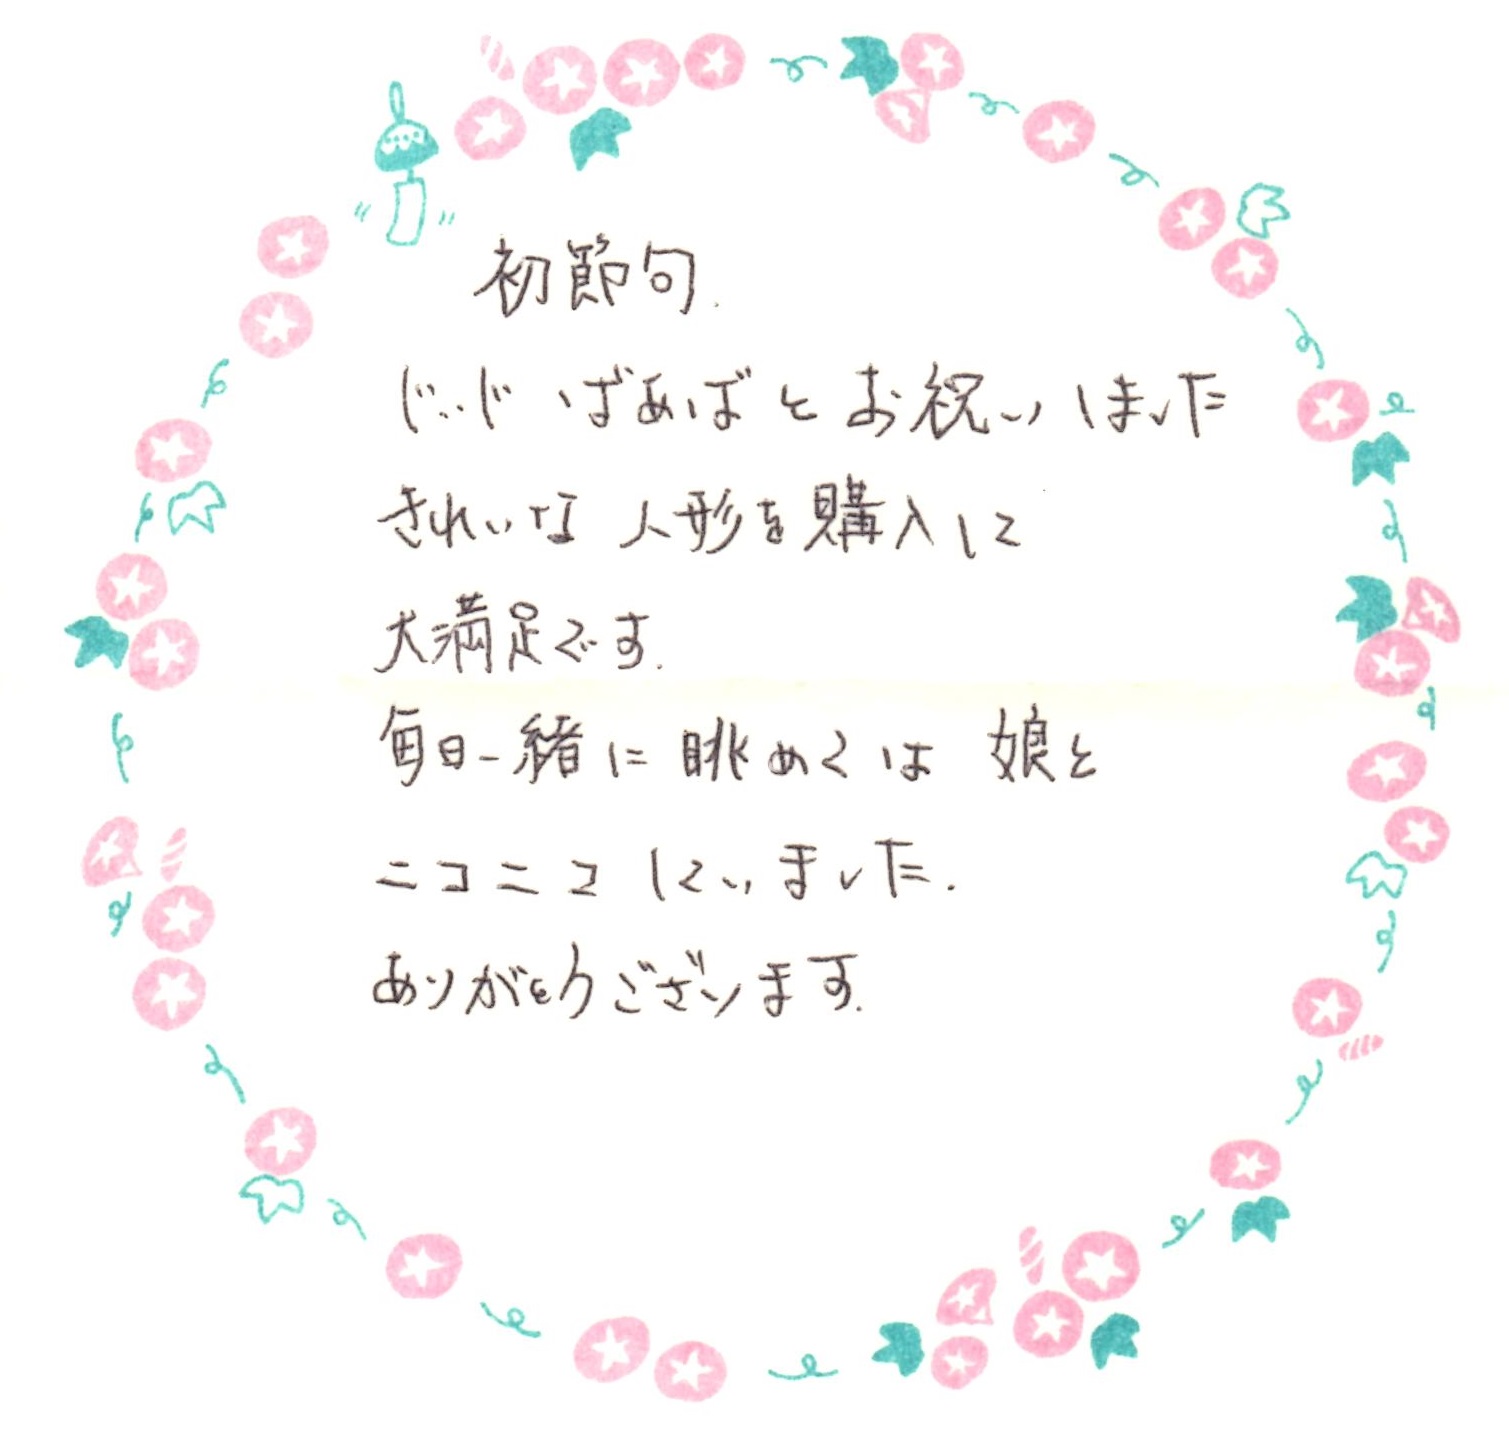 初節句.
じいじ ばあばとお祝いしました
きれいな人形を購入して
大満足です.
毎日一緒に眺めては 娘と
ニコニコしていました.
ありがとうございます.